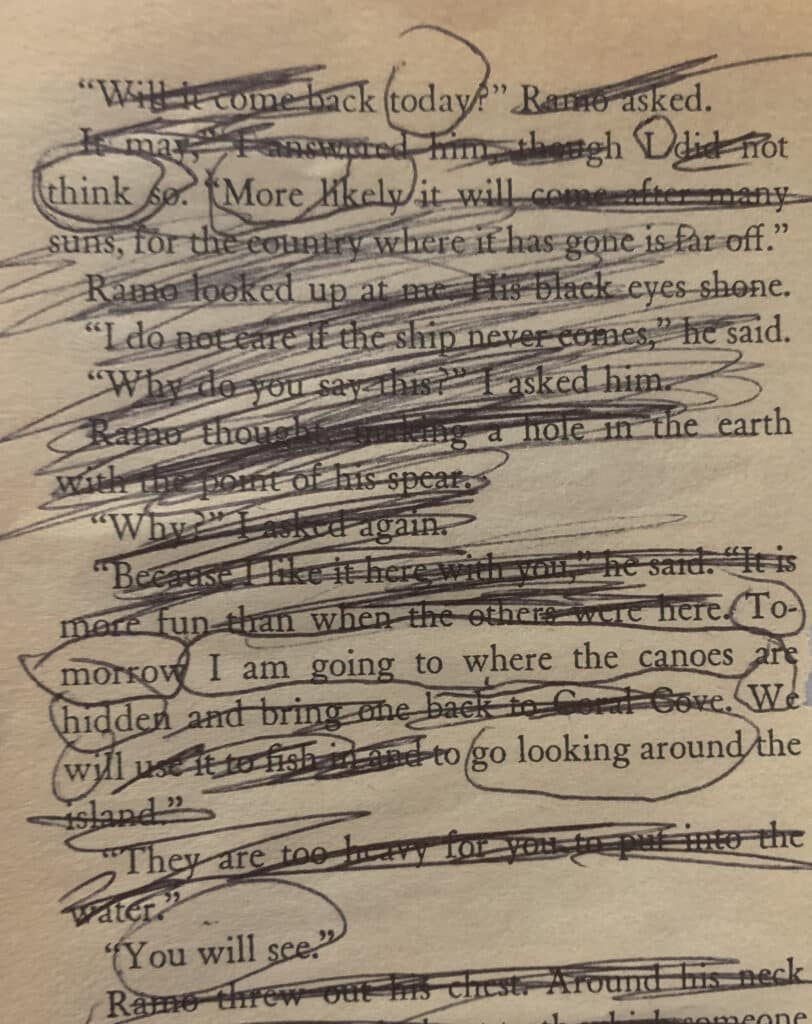 “Will it come back today?” Ramo asked.
It may,” I answered him, though I did not
think so. “More likely it will come after many
suns, for the country where it has gone is far off.”
Ramo looked up at me. His black eyes shone.
“I do not care if the ship never comes,” he said.
“Why do you say this?” I asked him.
Ramo thought, making a hole in the earth
with the point of his spear.
“Why?” I asked again.
“Because I like it here with you,” he said. “It is
more fun than when the others were here. To-
morrow I am going to where the canoes are
hidden and bring one back to Coral Cove. We
will use it to fish in and to go looking around the
island.”
“They are too heavy for you to put into the
water.”
“You will see.”
Ramo threw out his chest. Around his neck
someone